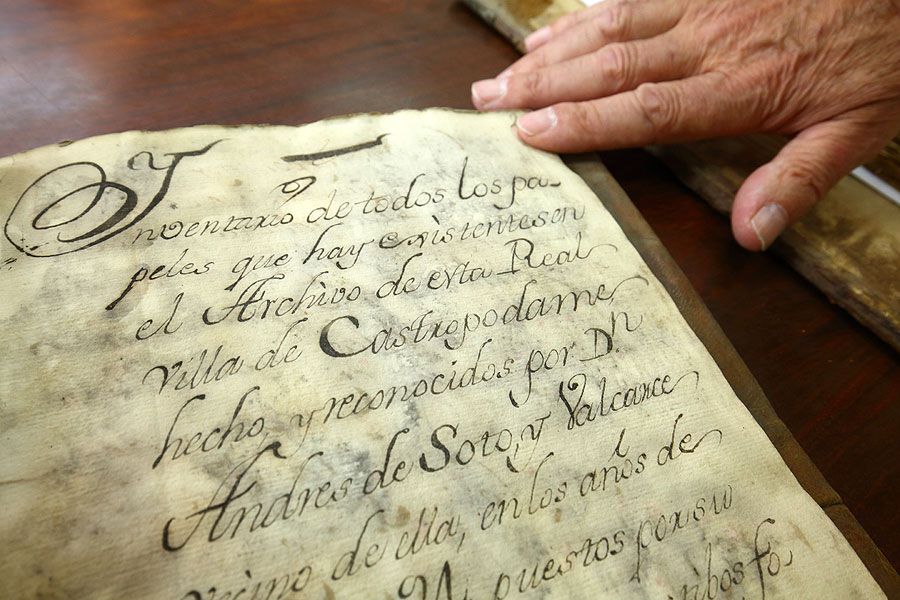 Ynventario de todos los pa-
peles que hay existentes en
el Archivo de esta Real
Villa de Castropodame,
hecho, y reconocidos por Dn.
Andres de Soto, y Valcarce
Vecino de ella, en los años de
puestos por su